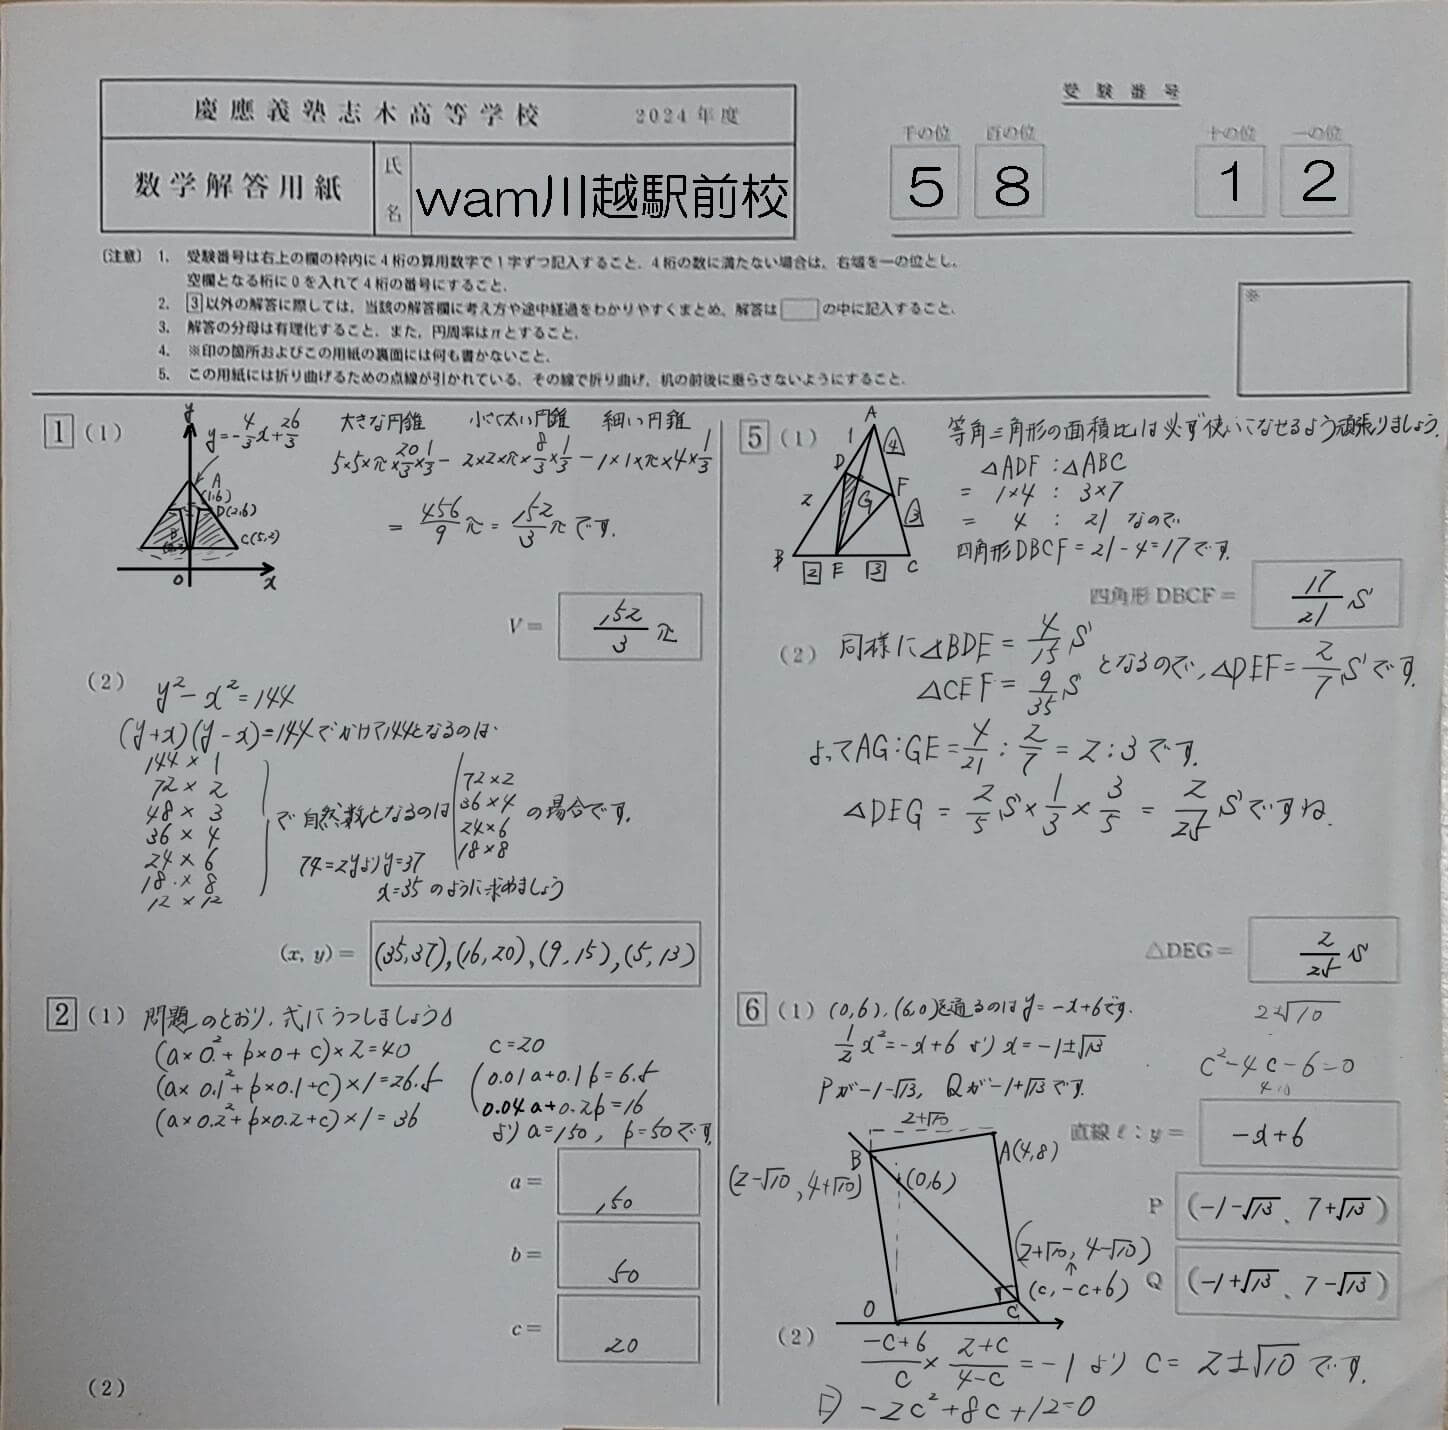 慶應義塾志木高等学校 2024年度
数学解答用紙
氏名
wam川越駅前校
受験番号
千の位 百の位 十の位 一の位
5 8 1 2
〔注意〕 1. 受験番号は右上の欄の枠内に4桁の算用数字で1字ずつ記入すること．4桁の数に満たない場合は，右端を一の位とし，
空欄となる桁に0を入れて4桁の番号にすること．
2. 3以外の解答に際しては，当該の解答欄に考え方や途中経過をわかりやすくまとめ，解答は□の中に記入すること．
3. 解答の分母は有理化すること．また，円周率はπとすること．
4. ※印の箇所およびこの用紙の裏面には何も書かないこと．
5. この用紙には折り曲げるための点線が引かれている．その線で折り曲げ，机の前後に垂らさないようにすること．
※
1 (1)
y
y=-4/3x+26/3
A
(1,6)
D(2,6)
B
C(5,2)
O
x
大きな円錐 小さく太い円錐 細い円錐
5×5×π×20/3×1/3 - 2×2×π×8/3×1/3 - 1×1×π×4×1/3
= 456/9π = 152/3π です.
V= 152/3 π
(2) y²-x²=144
(y+x)(y-x)=144でかけて144となるのは
144×1
72×2
48×3
36×4
24×6
18×8
12×12
で自然数となるのは
72×2
36×4
24×6
18×8
の場合です.
74=2yよりy=37
x=35のように求めましょう
(x, y)= (35,37),(16,20),(9,15),(5,13)
2 (1) 問題のとおり,式にうつしましょう
(a×0²+b×0+c)×2=40
(a×0.1²+b×0.1+c)×1=26.5
(a×0.2²+b×0.2+c)×1=36
c=20
0.01a+0.1b=6.5
0.04a+0.2b=16
より a=150, b=50です.
a= 150
b= 50
c= 20
(2)
5 (1)
A
1
4
D
2
G
F
3
B
2
E
3
C
等角三角形の面積比は必ず使いこなせるよう頑張りましょう.
△ADF:△ABC
= 1×4 : 3×7
= 4 : 21 なので
四角形DBCF=21-4=17です.
四角形DBCF= 17/21 S
(2) 同様に△BDE=4/15 S
△CEF=9/35 S
となるので,△DEF=2/7 Sです.
よってAG:GE=4/21:2/7=2:3です.
△DEG = 2/5 S×1/3×3/5 = 2/25 Sですね.
△DEG= 2/25 S
6 (1) (0,6),(6,0)を通るのはy=-x+6です.
1/2x²=-x+6 より x=-1±√13
Pが-1-√13, Qが-1+√13です.
2±√10
c²-4c-6=0
直線ℓ:y= -x+6
P (-1-√13、7+√13)
Q (-1+√13、7-√13)
2+√10
B
A(4,8)
(2-√10, 4+√10)
(0,6)
(2+√10, 4-√10)
↑
(c,-c+6)
O
C
(2)
-c+6/c × 2+c/4-c = -1 より c = 2±√10 です.
-2c²+8c+12=0